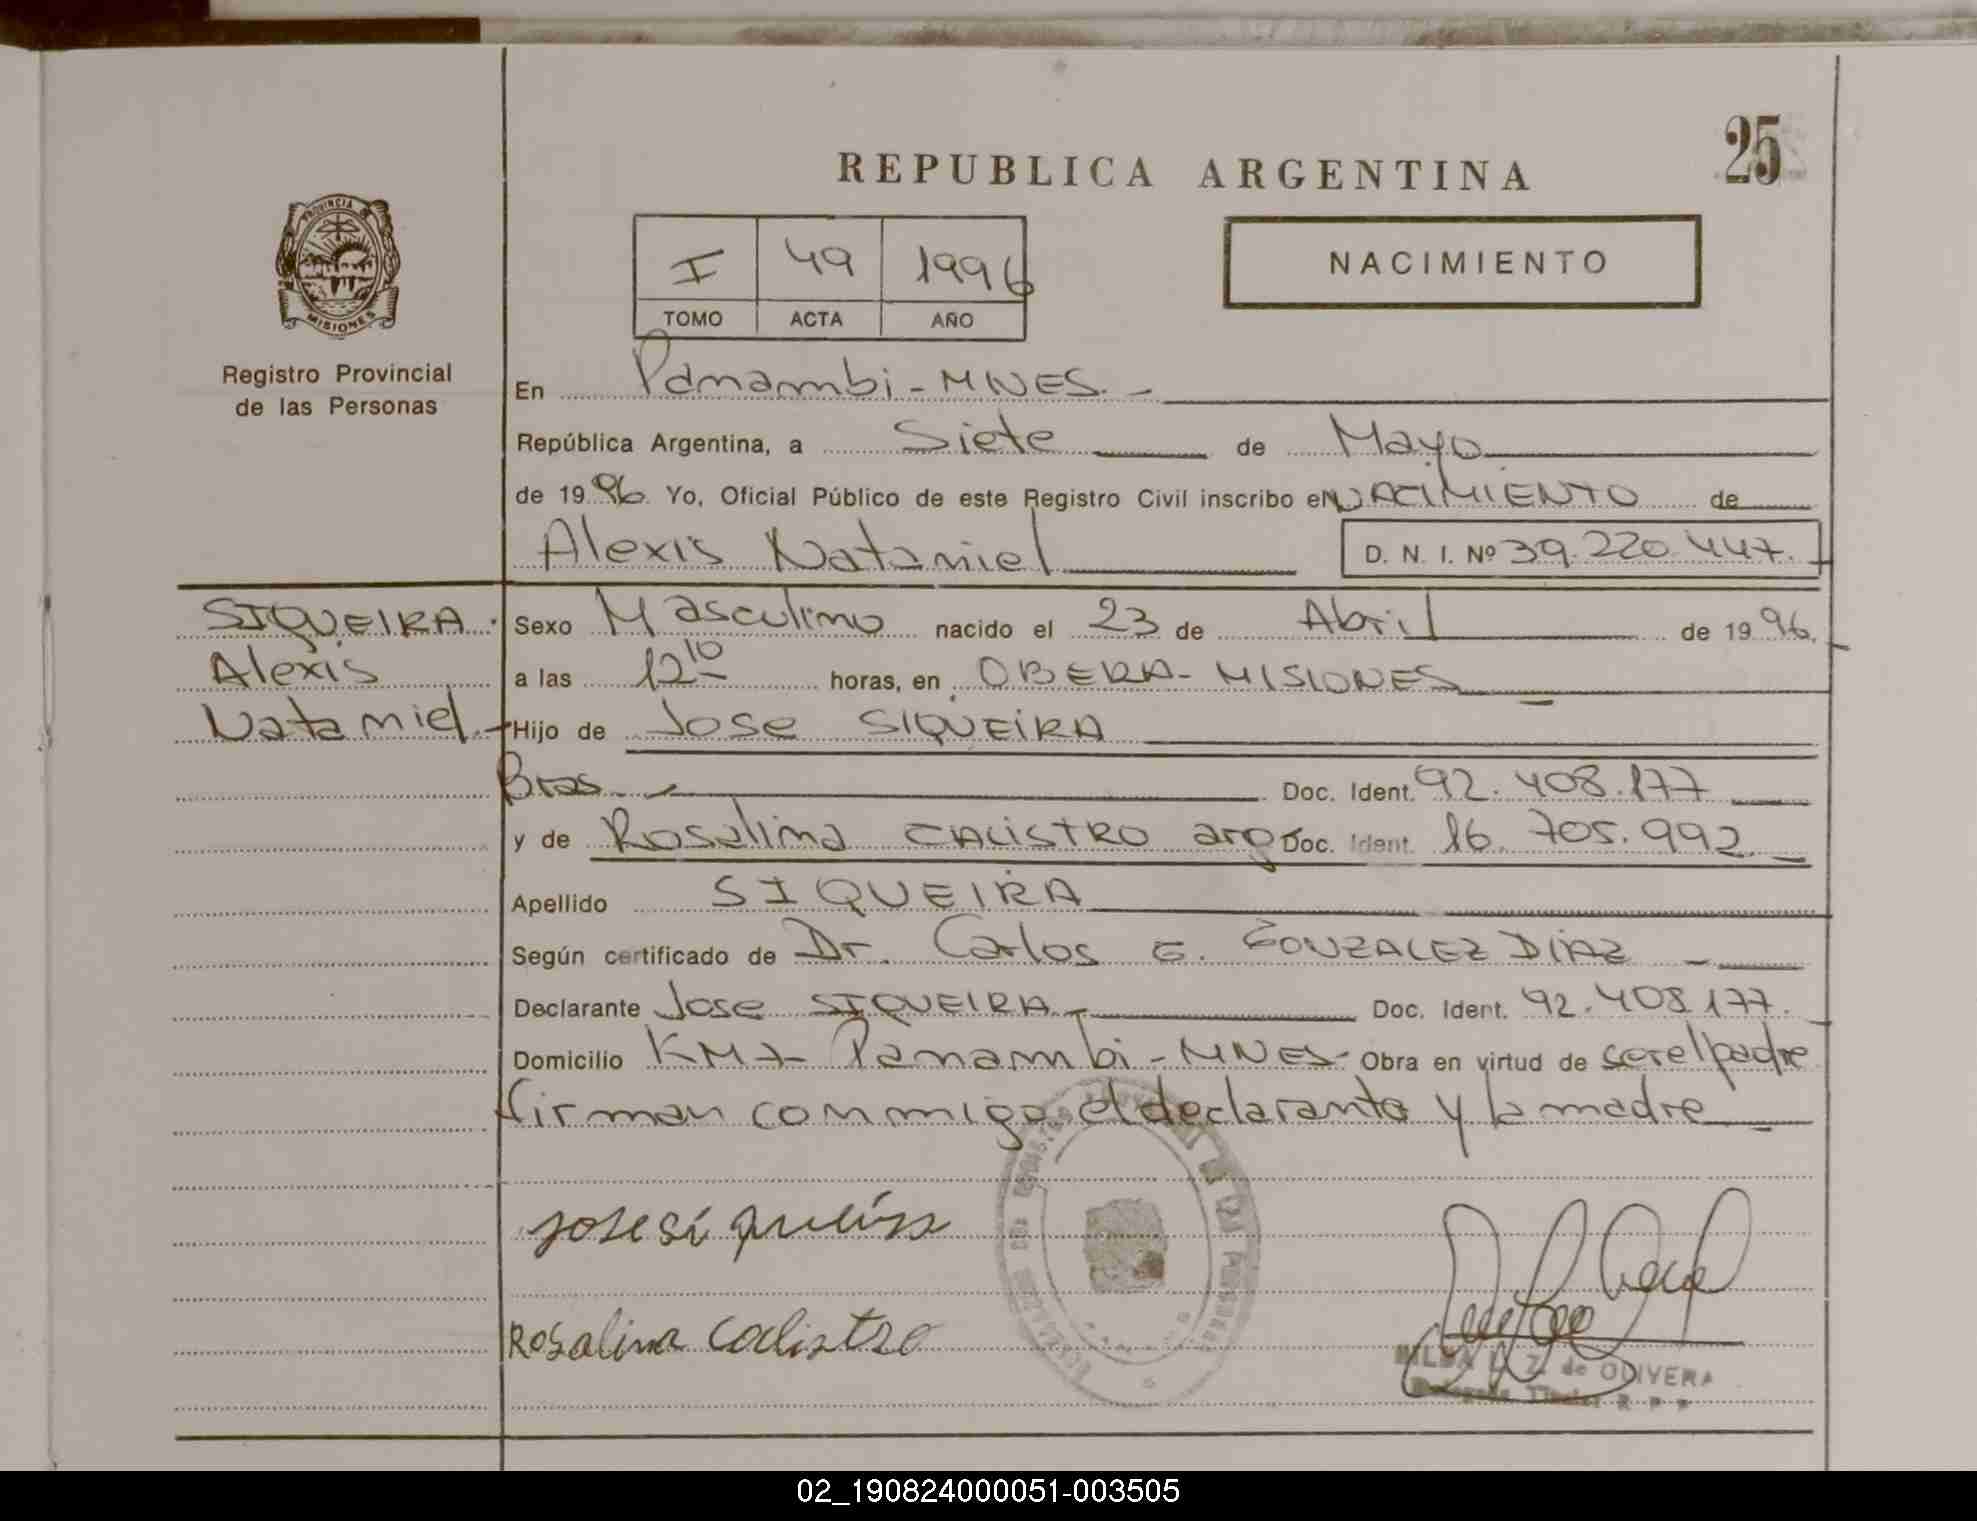 25
REPUBLICA ARGENTINA
PROVINCIA DE
MISIONES
Registro Provincial
de las Personas
I 49 1996
TOMO ACTA AÑO
NACIMIENTO
En Panambi - MNES. -
República Argentina, a Siete de Mayo
de 1996. Yo, Oficial Público de este Registro Civil inscribo el NACIMIENTO de
Alexis Nataniel D. N. I. Nº 39.220.447.
SIQUEIRA
Alexis
Nataniel. -
Sexo Masculino nacido el 23 de Abril de 1996.
a las 12 10 horas, en OBERA - MISIONES
Hijo de Jose SIQUEIRA
Bras. - Doc. Ident. 92.408.177
y de Rosalina CALISTRO arg. Doc. Ident. 16.705.992. -
Apellido SIQUEIRA
Según certificado de Dr. Carlos G. GONZALEZ DIAZ -
Declarante Jose SIQUEIRA Doc. Ident. 92.408.177.
Domicilio KM 7 - Panambi - MNES - Obra en virtud de ser el padre
firman conmigo el declarante y la madre
Jose siqueira
Rosalina Calistro
HILDA L. Z. de OLIVERA
Delegada Titular R. P. P.
02_190824000051-003505